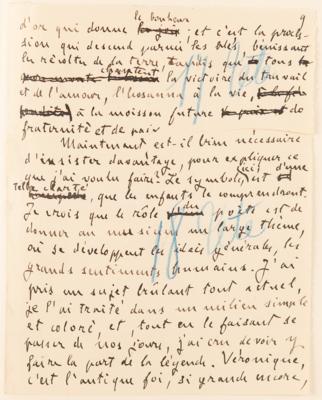 9
le bonheur
d'or qui donne ; et c'est la proces-
sion qui descend parmi les blés, bénissant
la récolte de la terre, tandis que tous
chantent la victoire du travail
et de l'amour, l'hosanna à la vie,
à la moisson future de
fraternité et de paix
Maintenant est-il bien nécessaire
d'insister davantage, pour expliquer ce
que j'ai voulu faire. Le symbole, ici, est d'une
telle clarté, que les enfants le comprendront.
Je crois que le rôle du poète est de
donner au musicien un large thème,
où se développent les idées générales, les
grands sentiments humains. J'ai
pris un sujet brûlant tout actuel,
je l'ai traité dans un milieu simple
et coloré, et, tout en le faisant se
passer de nos jours, j'ai cru devoir y
faire la part de la légende. Véronique,
c'est l'antique foi, si grande encore,